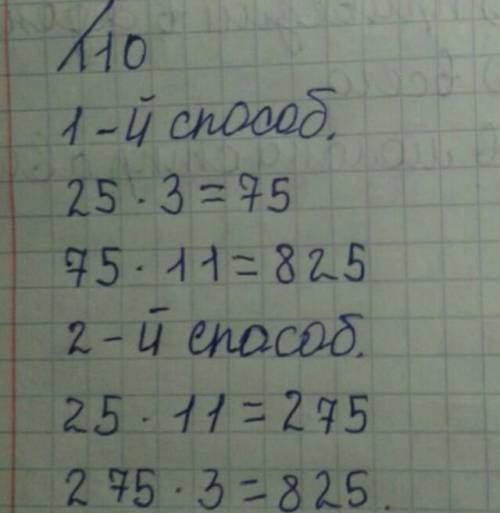 110
1-й способ.
25 · 3 = 75
75 · 11 = 825
2-й способ.
25 · 11 = 275
275 · 3 = 825.